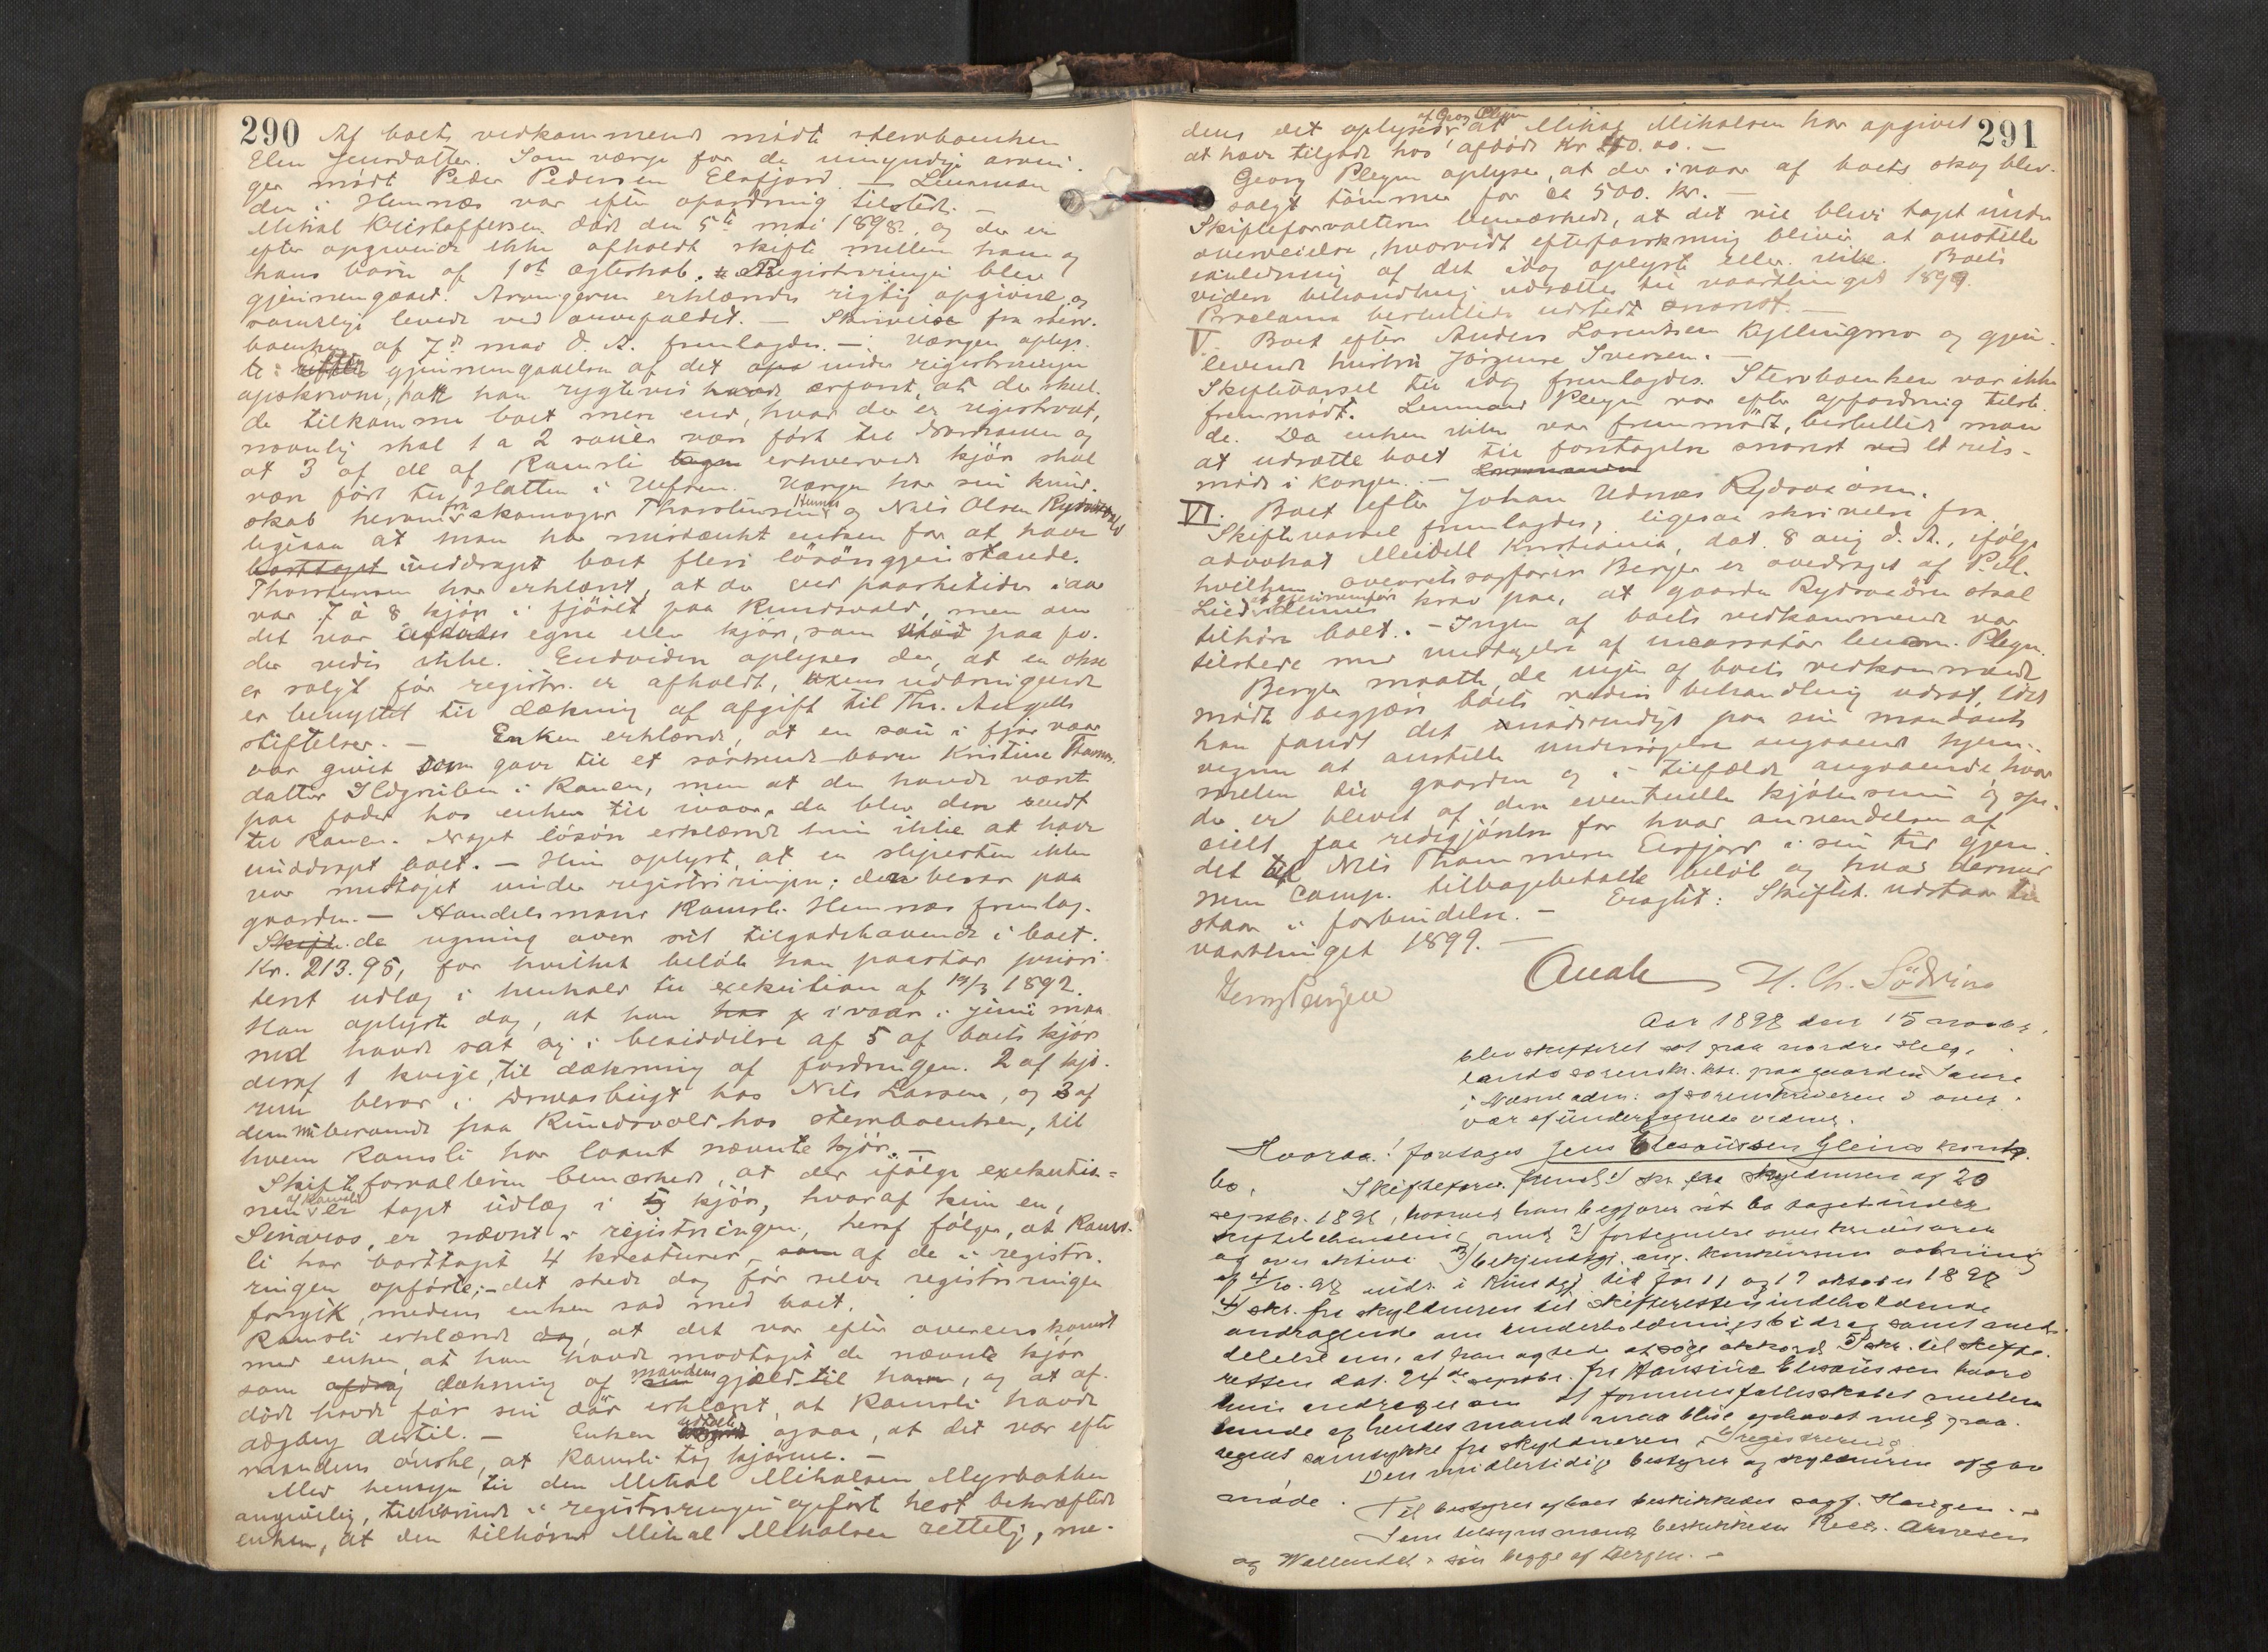 290
Af boets vedkommende mødte stervboenken
Elen Jensdatter. Som værge for de umyndige arvin-
ger mødte Peder Pedersen Elsfjord. — Lensman-
den i Hemnæs var efter opfordring tilstede. —
Mikal Kristoffersen døde den 5te mai 1898, og der er
efter opgivende ikke afholdt skifte mellem ham og
hans børn af 1ste ægteskab. Registreringen blev
gjennemgaaet. Arvingerne erklærede rigtig opgivne og
samtlige levede ved arvefaldet. — Skrivelse fra sterv-
boenken af 7de mai d. A. fremlagdes. — Værgen oplys-
te: efter gjennemgaaelsen af det under registreringen
opskrevne, at han rygtevis havde erfaret, at der skul-
de tilkomme boet mere end, hvad der er registreret,
navnlig skal 1 a 2 sauer være ført til og
at 3 af de af Ramsli tagne erhvervede kjør skal
være ført til Hatten i Vefsen. Værgen har sin kund-
skab herom fra skomager Thorstensen Hemnes og Nils Olsen
ligesaa at man har mistænkt enken for at have
borttaget unddraget boet flere løsøregjenstande.
Thorstensen har erklæret, at der ved paasketider i aar
var 7 à 8 kjør i fjøset paa Rundsvold, men om
det var afdødes egne eller kjør, som stod paa fo-
der vides ikke. Endvidere oplyses der, at en okse
er solgt før registr. er afholdt, uxens udbringende
er benyttet til dækning af afgift til Th. Angells
stiftelser. — Enken erklærede, at en sau i fjor vaar
var givet som gave til et søstrende-barn Kristine Thomas-
datter Ildgruben i Ranen, men at den havde været
paa foder hos enken til ivaar, da blev den sendt
til Ranen. Noget løsøre erklærede hun ikke at have
unddraget boet. — Hun oplyste, at en slipesten ikke
var medtaget under registreringen; den beror paa
gaarden. — Handelsmand Ramsli Hemnæs fremlag-
Skift. de regning over sit tilgodehavende i boet.
Kr. 213.95, for hvilket beløb han paastår priori-
teret udlæg i henhold til exekution af 19/3 1892.
Han oplyste dog, at han har ivaar i juni maa-
ned havde sat sig i besiddelse af 5 af boets kjør
deraf 1 kvige, til dækning af fordringen. 2 af kjø-
rene beror i hos Nils Larsen, og 3 af
dem nu beroende paa Rundsvold hos sterboenken, til
hvem Ramsli har laant nævnte kjør. —
Skifteforvalteren bemærkede, at der ifølge exekutio-
nen af Ramsli er taget udlæg i 5 kjør, hvoraf kun en,
Sinaros, er nævnt i registringen, heraf følger, at Rams-
li har borttaget 4 kreaturer, som af de i registre-
ringen opførte; — det skede dog før selve registreringen
foregik, medens enken sad med boet.
Ramsli erklærede dog, at det var efter overenskomst
med enken, at han havde modtaget de nævnte kjør
som afdrag dækning af mandens gjæld til ham, og at af-
døde havde før sin død erklæret, at Ramsli havde
adgang dertil. — Enken udtalte ogsaa, at det var efter
mandens ønske, at Ramsli tog kjørene. —
Med hensyn til den Mikal Mikalsen Myrbakken
angivelig, tilhørende i registreringen opført hest bekræftede
enken, at den tilhører Mikal Mikalsen rettelig, me-
291
dens det oplystes af Georg Plejm at Mikal Mikalsen har opgivet
at have tilgode hos afdøde Kr 40.00. —
Georg Plejm oplyser, at der ivaar af boets skog blev
solgt tømmer for ca 500. kr. —
Skifteforvalteren bemærkede, at det vil blive taget under
overveielse, hvorvidt efterforskning bliver at anstille
i anledning af det idag oplyste eller ikke. Boets
videre behandling udsættes til vaartinget 1899.
Proclama besluttedes udstedt snarest. —
V. Boet efter Anders Lorentsen Kyllingmo og gjen-
levende hustru Jørgine Iversen. —
Skiftevarsel til idag fremlagdes. Stervboenken var ikke
fremmødt. Lensmand Plejm var efter opfordring tilste-
de. Da enken ikke var fremmødt, besluttedes man
at udsætte boet til foretagelse snarest ved et rets-
møde i Korgen. — Lensmanden
VI. Boet efter Johan Udnæs Rydsaaøren.
Skiftevarsel fremlagdes, ligesaa skrivelse fra
advokat Meidell Kristiania, dat. 8 aug d. A., ifølge
hvilken overretssagfører Berger er overdraget af P.M.
Lied at gjennemføre krav paa, at gaarden Rydsaaøren skal
tilhøre boet. — Ingen af boets vedkommende var
tilstede med undtagelse af incassator lensm. Plejm.
Berger maatte, da ingen af boets vedkommende
mødte begjære boets videre behandling udsat, idet
han fandt det nødvendigt paa sin mandants
vegne at anstille undersøgelse angaaende hjem-
melen til gaarden og i tilfælde angaaende, hvor
der er blevet af den eventuelle kjøbesum og spe-
cielt faa redegjørelse for hvor anvendelsen af
det til Nils Thommesen Elsfjord i sin tid gjen-
nem Comp. tilbagebetalte beløb og hvad dermed
staar i forbindelse. — Eragtet: Skiftet udstaar til
vaartinget 1899. —
H. Ch. Södring
Aar 1898 den 15 novbr.
blev skifteret sat paa nordre Helge-
lands sorenskr.ktr. paa gaarden
i Næsne adm. af sorenskriveren i over-
vær af undertegnede vidner.
Hvorda! foretages Jens Elesæussen Gleins konk.
bo. Skifteforv. freml. 1) skr. fra skyldneren af 20
septbr. 1898, hvorved han begjærer sit bo taget under
skiftebehandling med 2) fortegnelse over kreditorer
og over aktiva 3) bekjendtgj. ang. konkursens aabning
af 4/10. 98 indr. i Kundgj. tid. for 11 og 12 oktober 1898
4) skr. fra skyldneren til skifteretten indeholdende
andragende om underholdningsbidrag samt med-
delelse om, at han agtede at søge akkord 5) skr. til skifte-
retten dat. 24de septbr. fra Hansine Elesæussen hvori
hun andrager om at formuesfællesskabet mellem
hende og hendes mand maa blive ophævet med paa-
tegnet samtykke fra skyldneren. 6) registrering
Den midlertidige bestyrer og skyldneren afgav
møde. Til bestyrer af boet beskikkedes sagf. Horgen. —
Som tilsynsmænd beskikkedes Pedr. Arnesen
og Wallendahl & søn begge af Bergen. —